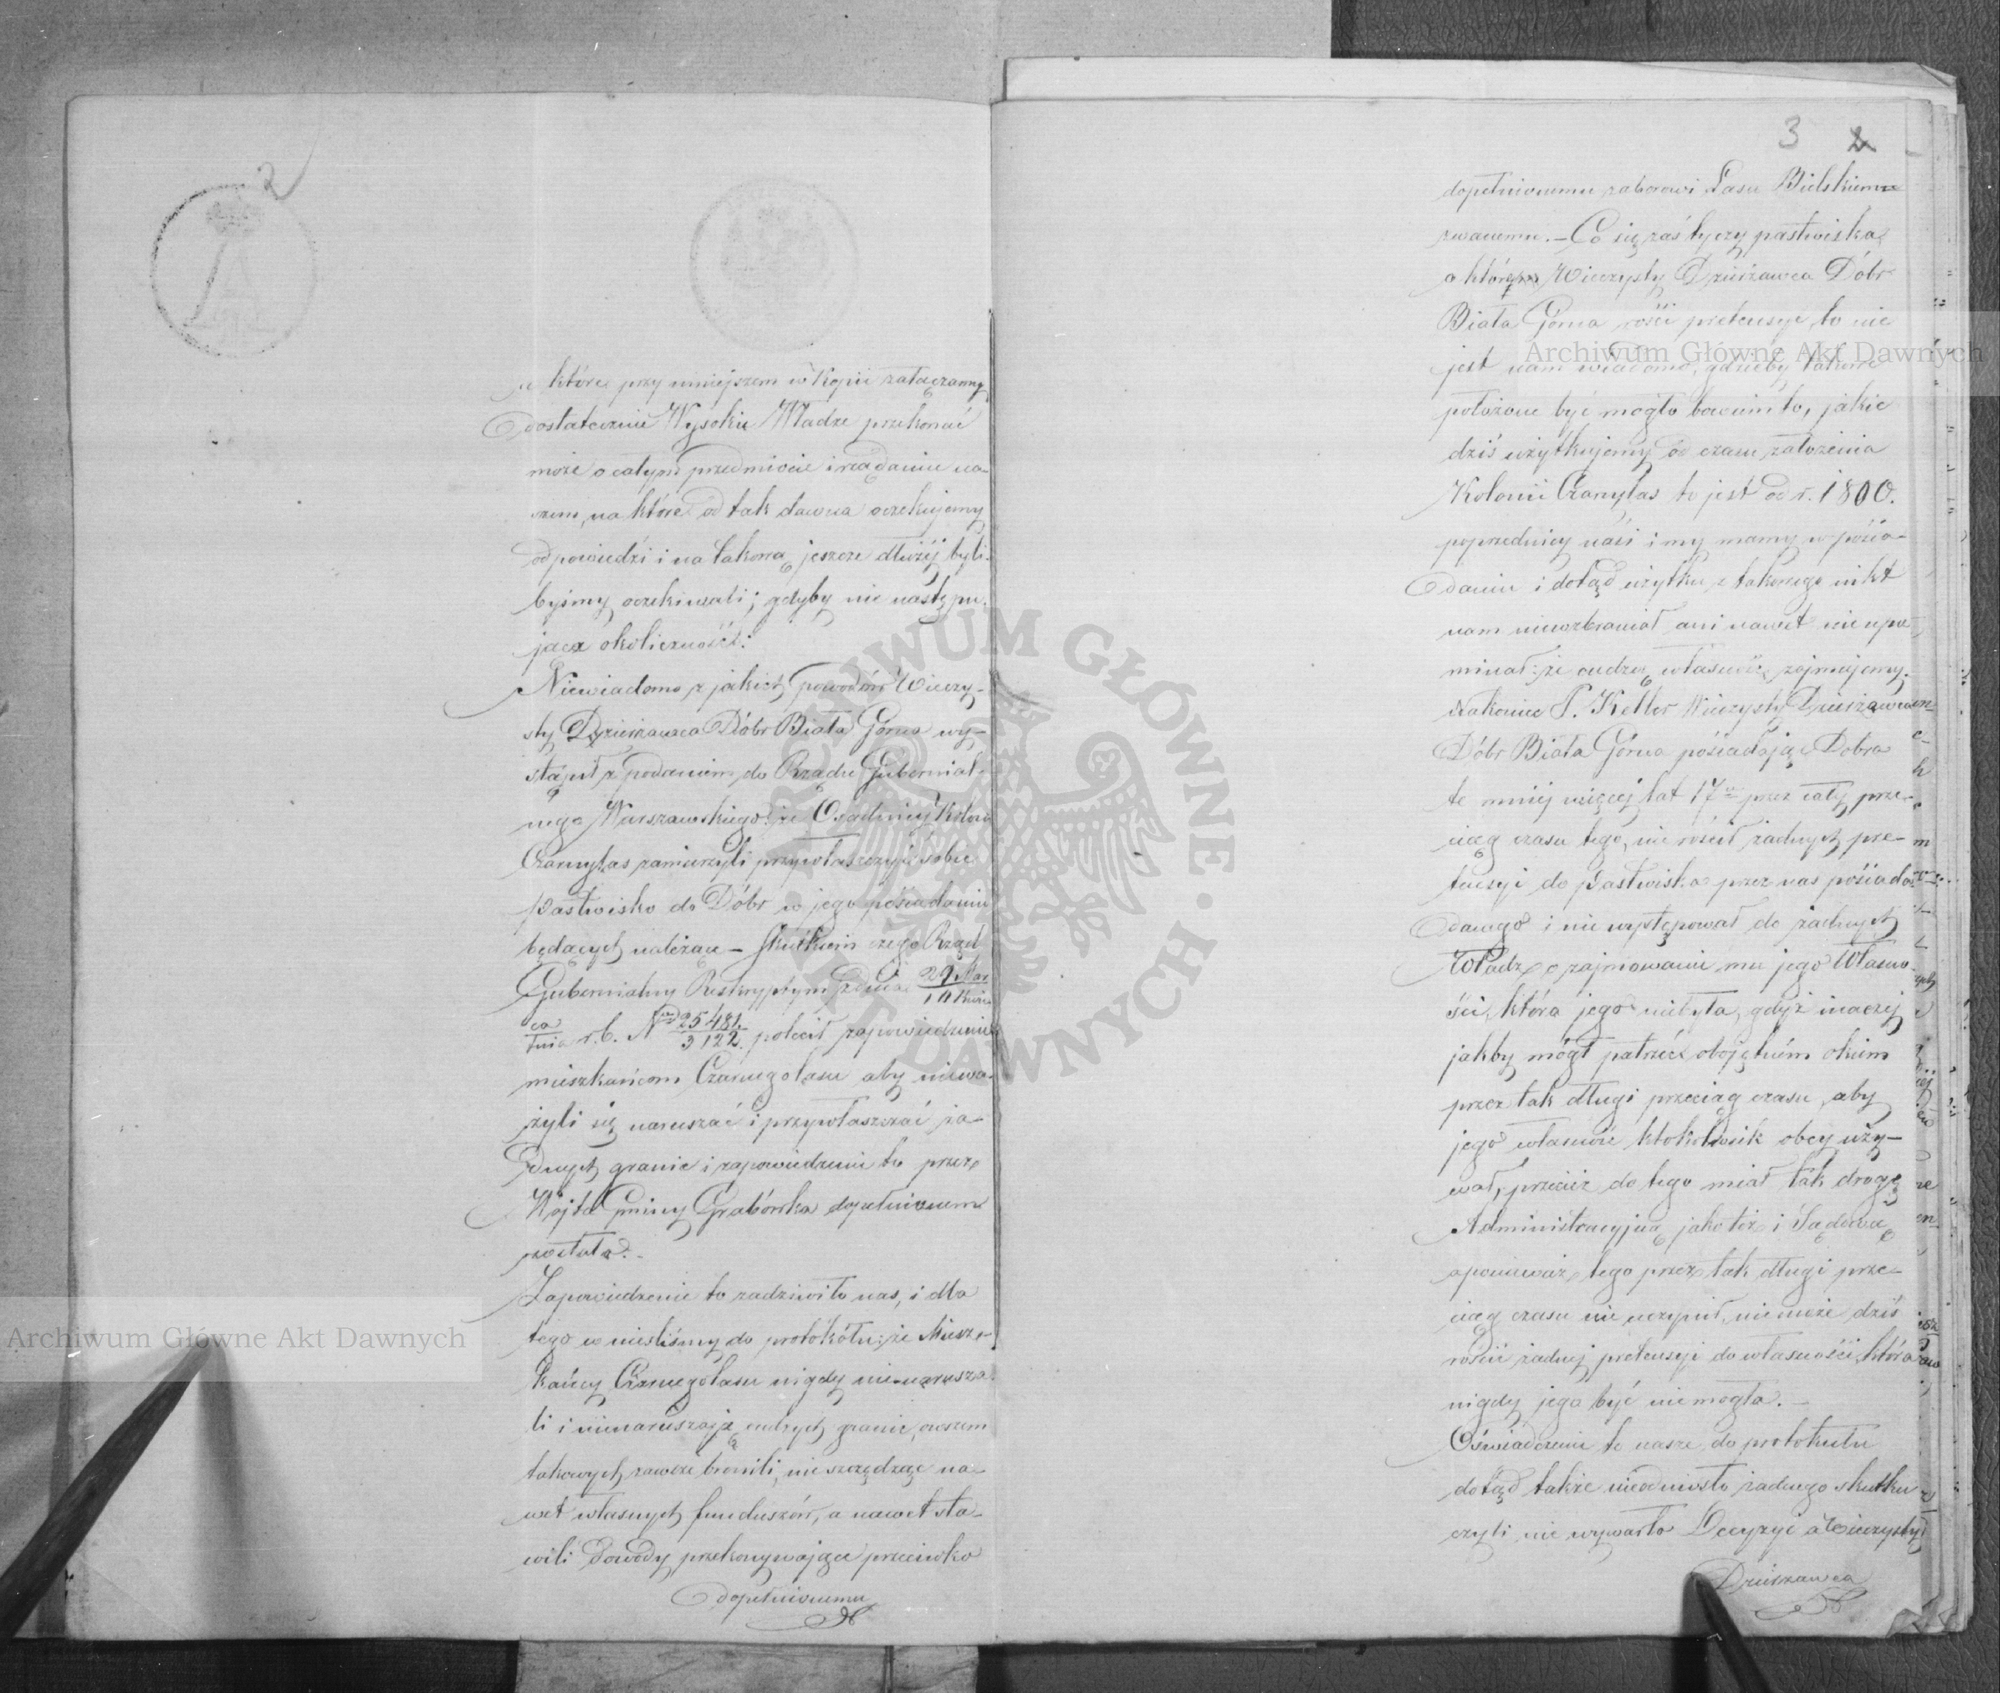 2
a które przy niniejszem w Kopii załączamy
dostatecznie Wysokie Władze przekonać
może o całym przedmiocie i żądaniu na-
szem, na które od tak dawna oczekujemy
odpowiedzi i na takową jeszcze dłużéj byli-
byśmy oczekiwali; gdyby nie następu-
jące okoliczność:
Niewiadomo z jakich powodów Wieczy-
sty Dzierżawca Dóbr Biała Górna wy-
stąpił z podaniem do Rządu Gubernial-
nego Warszawskiego: że Osadnicy Kolonii
Czarnylas zamierzyli przywłaszczyć sobie
pastwisko do Dóbr w jego posiadaniu
będących należące – skutkiem czego Rząd
Gubernialny Reskryptym z dnia 29 Mar
ca r. b. N 25481/3122 polecił zapowiedzenie
mieszkańcom Czarnegolasu aby nieważ-
żyli się naruszać i przywłaszczać ża-
dnych granic i zapowiedzenie to przez
Wójta Gminy Grabówka dopełnionem
zostało.
Zapowiedzenie to zadziwiło nas, i dla
tego wnieśliśmy do protokółu: że Miesz-
kańcy Czarnegolasu nigdy nie narusza-
li i nienaruszają cudzych granic, owszem
takowych zawsze bronili, nieszczędząc na-
wet własnych funduszów, a nawet sta-
wili dowody przekonywające przeciwko
dopełnionemu
3 2
dopełnionemu zaborowi Lasu Bielskiem
zwanemu. – Co się zaś tyczy pastwiska
o które Wieczysty Dzierżawca Dóbr
Biała Górna rości pretensye, to nie
jest nam wiadomo, gdzieby takowe
położone być mogło bowiem to, jakie
dziś użytkujemy od czasu założenia
Kolonii Czarnylas to jest od r. 1800.
poprzednicy nasi i my mamy w posia-
daniu i dotąd użytku z takowego nikt
nam niewzbraniał ani nawet nie upo-
minał: że cudzą własność zajmujemy.
Nakoniec P. Keller Wieczysty Dzierżawca
Dóbr Biała Górna posiadając Dobra
te mniej więcej lat 17 przez cały prze-
ciąg czasu tego, nie rościł żadnych pre-
tensyi do pastwiska przez nas posiada-
danego i nie występował do żadnych
Władz o zajmowanie mu jego Własno-
ści, która jego niebyła, gdyż inaczej
jakby mógł patrzéć obojętném okiem
przez tak długi przeciąg czasu, aby
jego własność ktokolwiek obcy uży-
wał, przecież do tego miał tak drogę
Administracyjną jako też i Sądową
a ponieważ tego przez tak długi prze-
ciąg czasu nie uczynił, nie może dziś
rościć żadnej pretensyi do własności, która
nigdy jego być niemogła. –
Oświadczenie te nasze do protokułu
dotąd także nieodniosło żadnego skutku
czyli nie wywarło Decyzyi a Wieczysty
Dzierżawca
Archiwum Główne Akt Dawnych
Archiwum Główne Akt Dawnych
ARCHIWUM GŁÓWNE AKT DAWNYCH